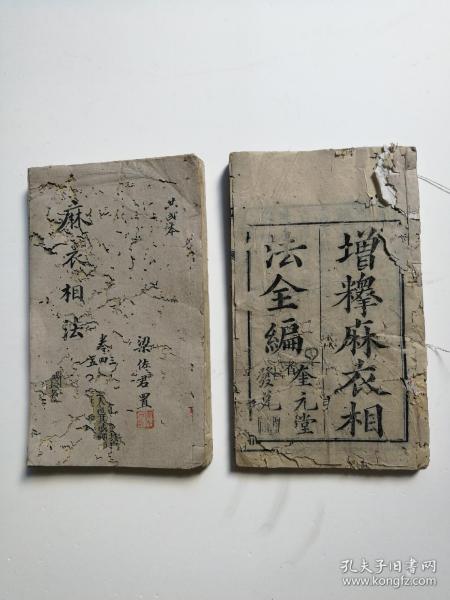 麻衣相法
共弍本
卷三
四
五
梁佐君置
增釋麻衣相
法全編
奎元堂
發兌
孔夫子旧书网
www.kongfz.com